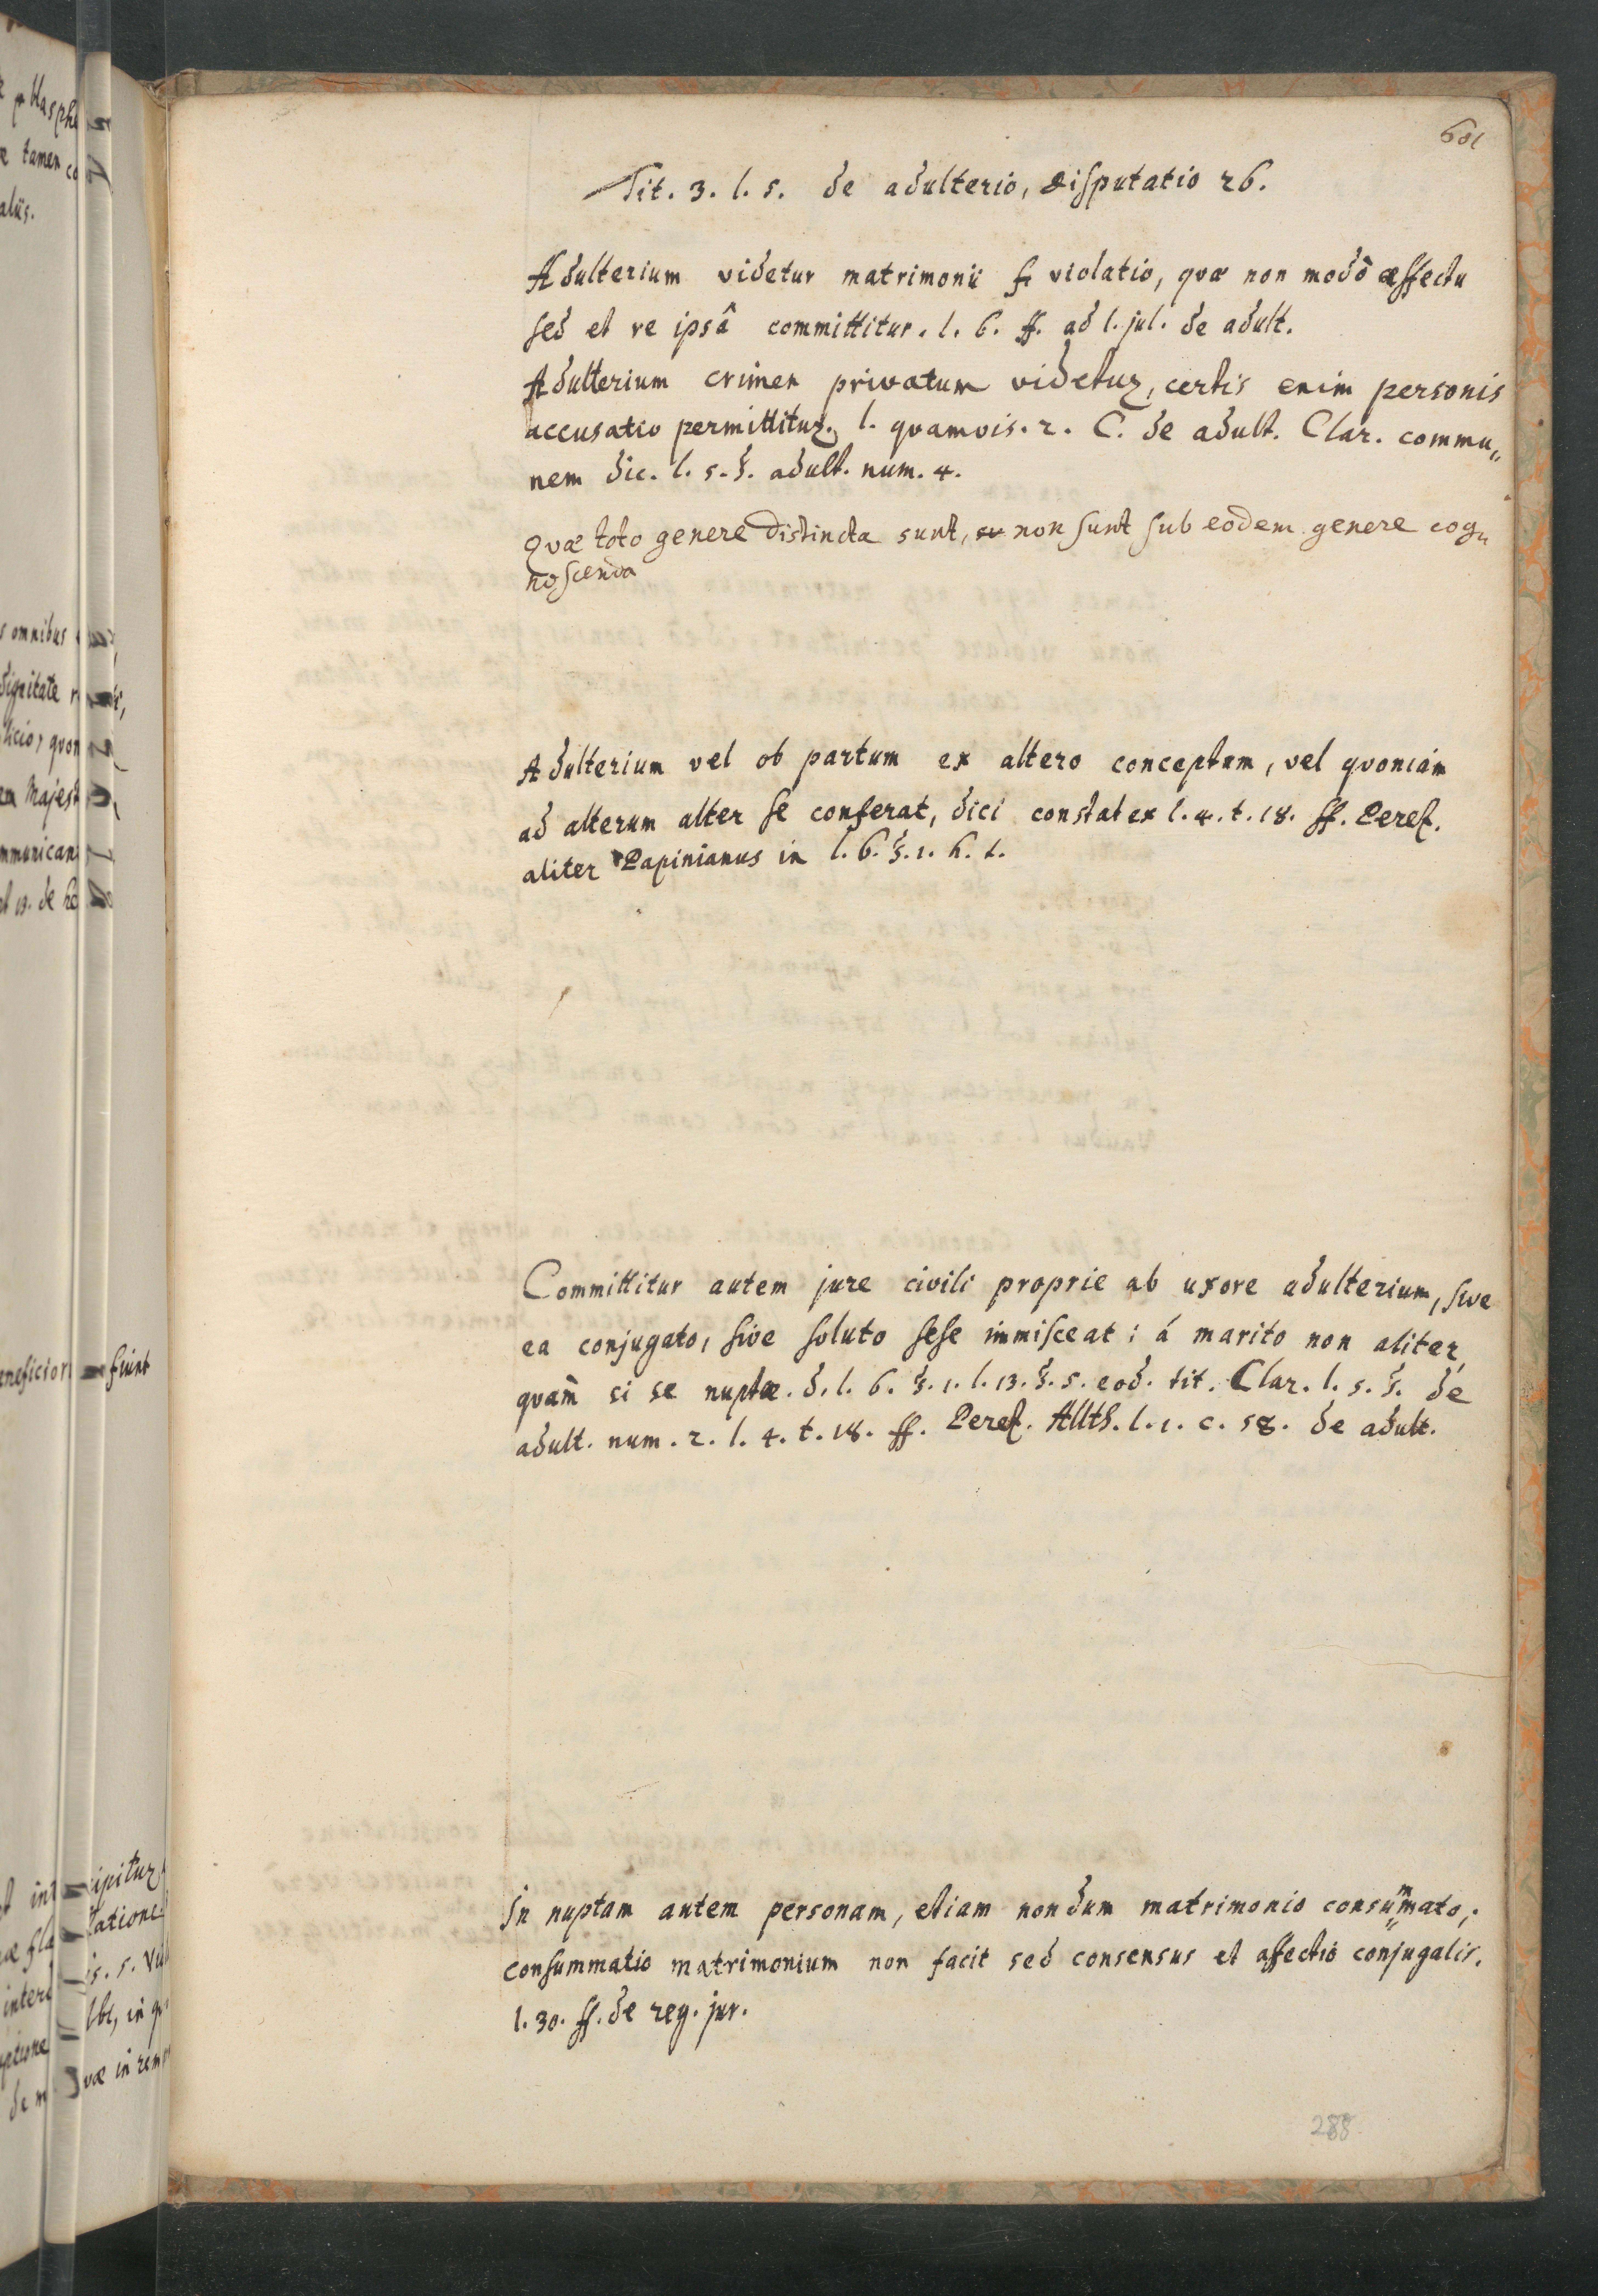 601
Tit. 3. l. 5. de adulterio, disputatio 26.
Adulterium videtur matrimonii violatio, quæ non modò æffectu
sed et re ipsâ committitur. l. 6. ff. ad l. jul. de adult.
Adulterium crimen privatum videtur, certis enim personis
accusatio permittitur. l. quamvis. 2. C. de adult. Clar. commu„
nem dic. l. 5. §. adult. num. 4.
Quæ toto genere distincta sunt, non sunt sub eodem genere cog„
noscenda
Adulterium vel ob partum ex altero conceptum, vel quoniàm
ad alterum alter se conferat, dici constat ex l. 4. t. 18. ff. Perez.
aliter Papinianus in l. 6. §. 1. h. t.
Committitur autem jure civili proprie ab uxore adulterium, sive
ea conjugato, sive soluto sese immisceat; á marito non aliter,
quam̀ si se nuptæ. d. l. 6. §. 1. l. 13. §. 5. eod. tit. Clar. l. 5. §. de
adult. num. 2. l. 4. t. 18. ff. Perez. Allth. l. 1. c. 58. de adult.
In nuptam autem personam, etiam nondum matrimonio consummato,
consummatio matrimonium non facit sed consensus et affectio conjugalis.
l. 30. ff. de reg. jur.
288